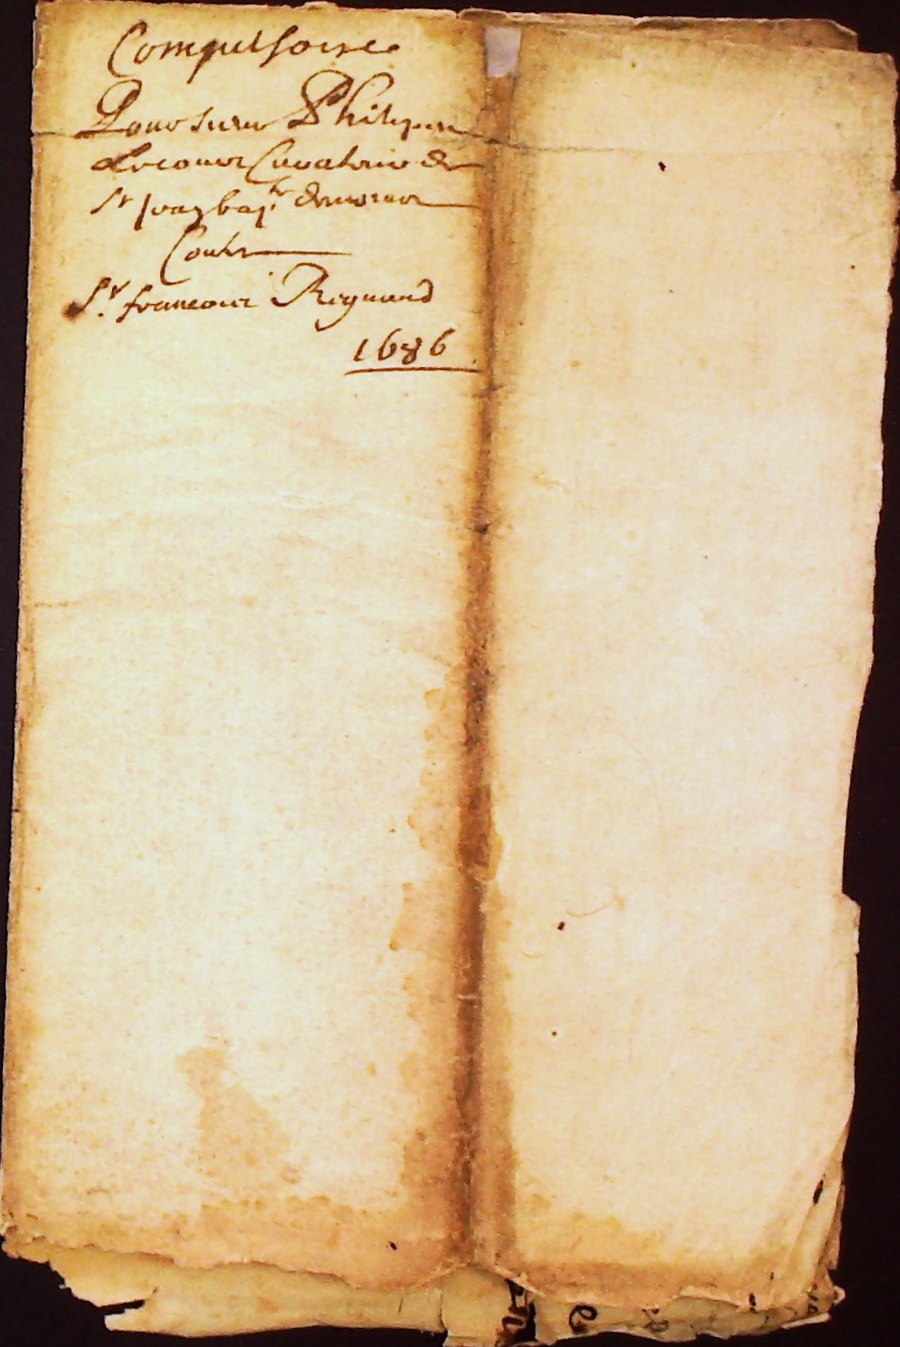 Compulsoire
Pour sieur Philipes
Lecomor Curateur de
St Jean bapte
Contre
Sr. francois Regnard
1686